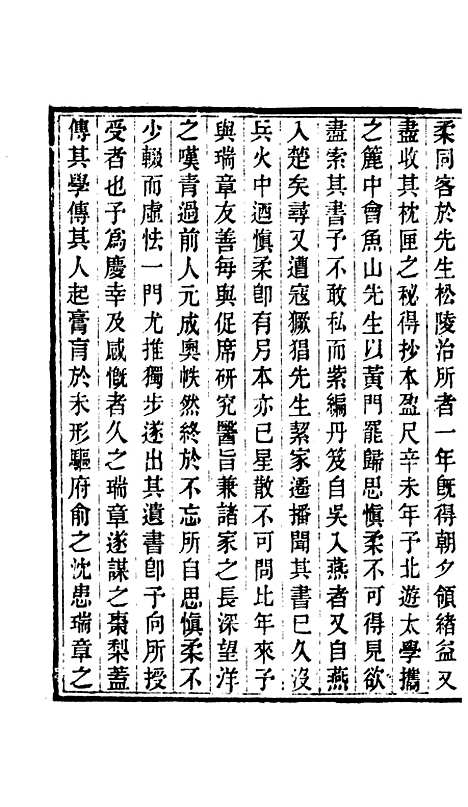 柔同客於先生松陵治所者一年旣得朝夕領緒益又
盡收其枕匣之秘得抄本盈尺辛未年予北遊太學攜
之簏中會魚山先生以黃門罷歸思愼柔不可得見欲
盡索其書予不敢私而紫編丹笈自吳入燕者又自燕
入楚矣尋又遭寇獗猖先生挈家遷播聞其書已久沒
兵火中迺愼柔卽有另本亦已星散不可問比年來予
與瑞章友善每與促席硏究醫旨兼諸家之長深望洋
之嘆青過前人元成奧帙然終於不忘所自思愼柔不
少輟而虛怯一門尤推獨步遂出其遺書卽予向所授
受者也予爲慶幸及感慨者久之瑞章遂謀之棗梨蓋
傳其學傳其人起膏肓於未形驅府俞之沈患瑞章之